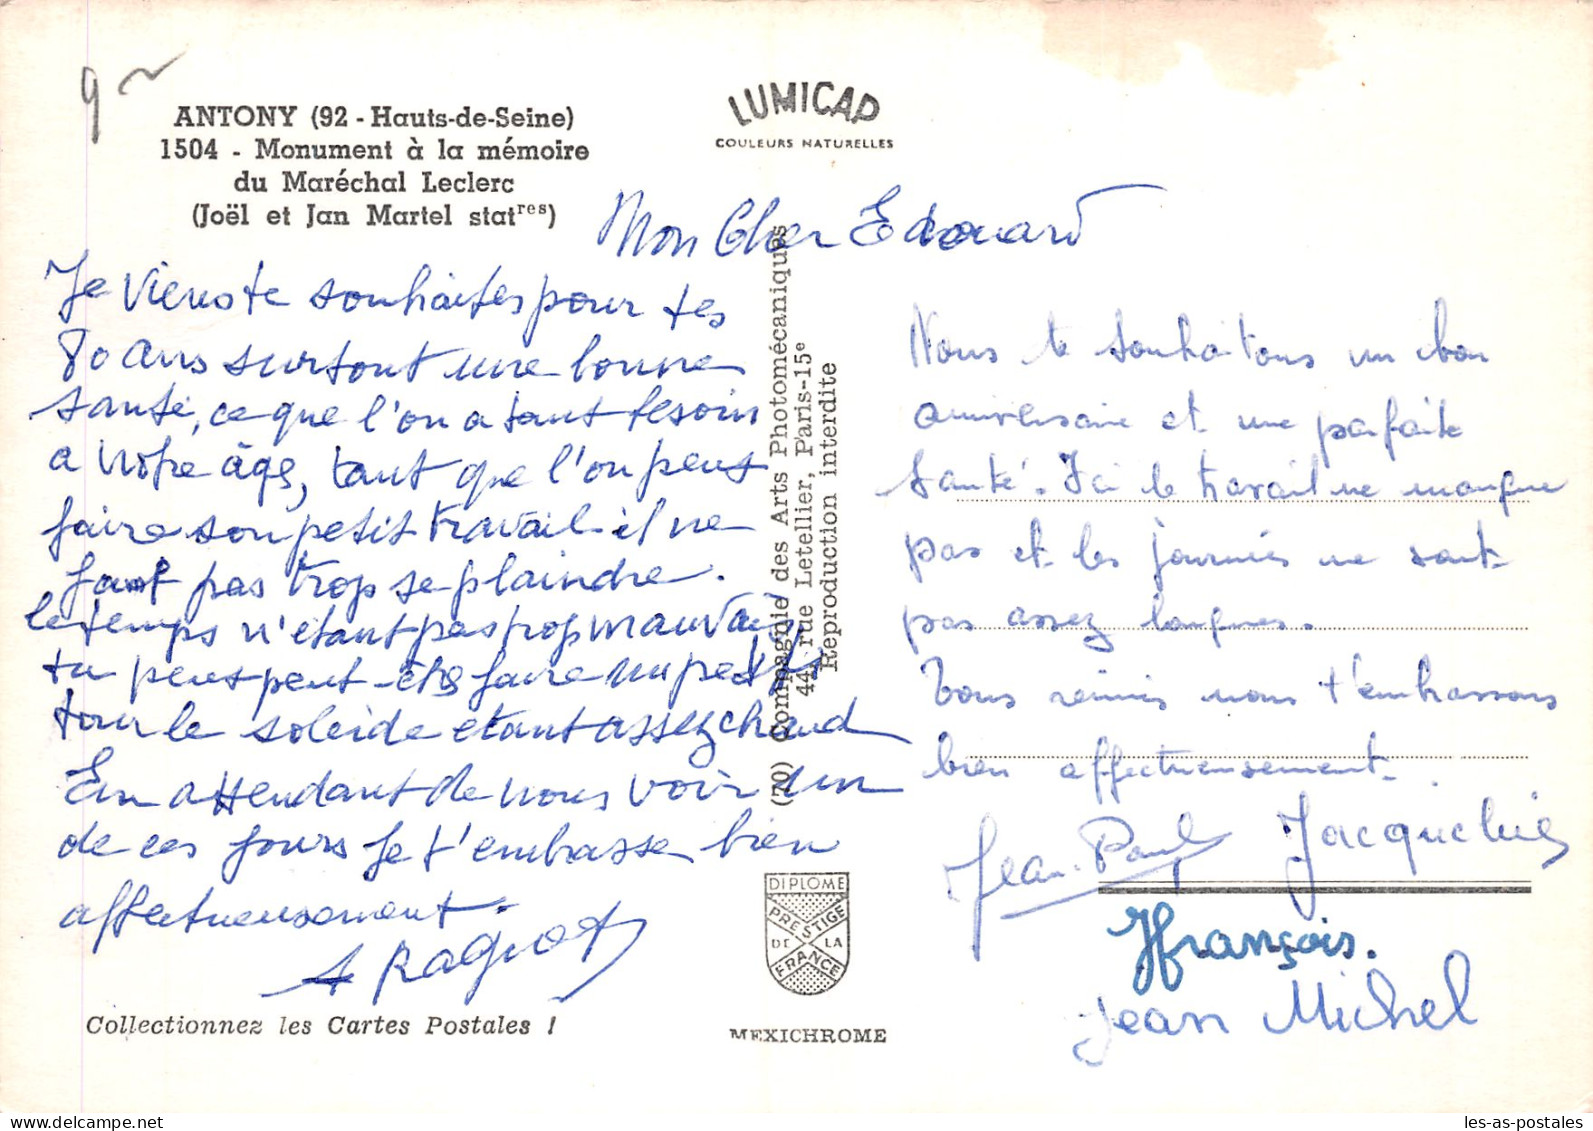 9
ANTONY (92 - Hauts-de-Seine)
1504 - Monument à la mémoire
du Maréchal Leclerc
(Joël et Jan Martel statres)
LUMICAP
COULEURS NATURELLES
Mon Cher Edouard
Je viens te souhaites pour tes
80 ans surtout une bonne
santé, ce que l'on a tant besoin
a notre âge, tant que l'on peus
faire son petit travail il ne
faut pas trop se plaindre.
le temps n'étant pas trop mauvais
tu peus peut-être faire un petit
tour le soleide etant assez chaud
En attendant de nous voir un
de ces jours je t'embrasse bien
affectueusement.
A Ragnot
Collectionnez les Cartes Postales !
(70) Compagnie des Arts Photomécaniques
44, rue Letellier, Paris-15e
Reproduction interdite
DIPLOME
PRESTIGE
DE LA
FRANCE
MEXICHROME
Nous te souhaitons un bon
anniversaire et une parfaite
santé. Ici le travail ne manque
pas et les journées ne sont
pas assez longues.
Tous réunis nous t'embrassons
bien affectueusement.
Jean-Paul Jacqueline
François.
Jean Michel
les-as-postales.com